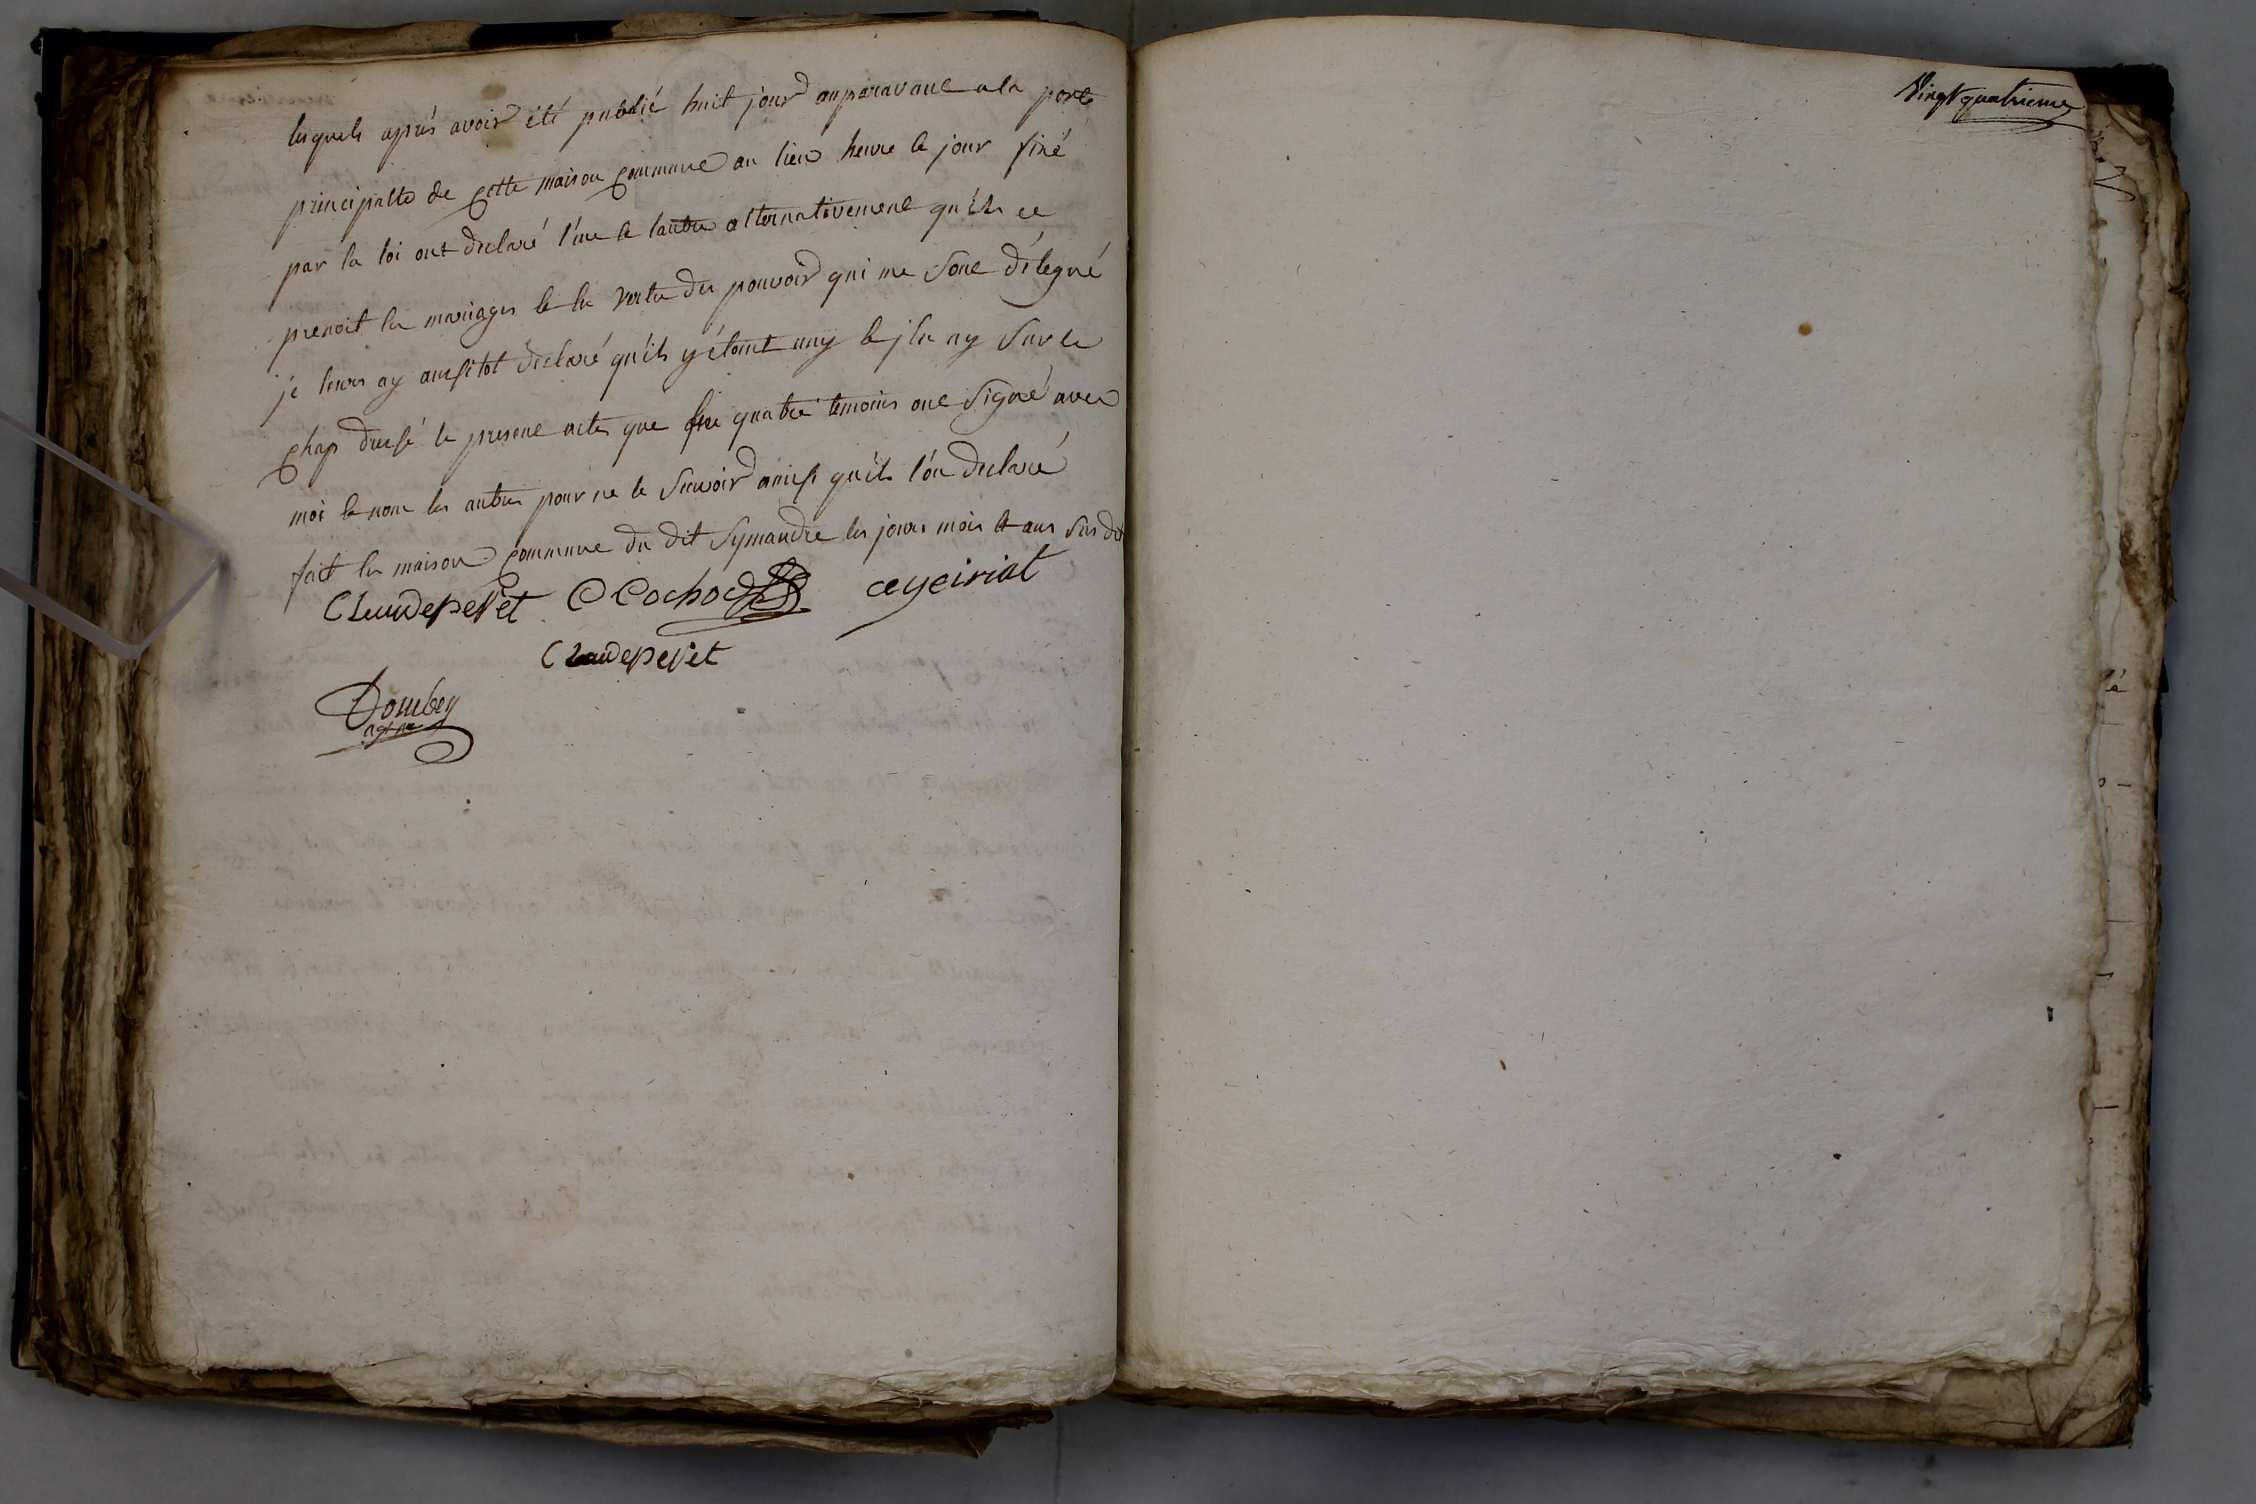 lesquels aprés avoir été publié huit jour auparavant a la porte
principalle de cette maison commune au lieu heure le jour fixé
par la loi ont declaré l'une & lautre alternativement qu'ils ce
prenoit en mariages & en vertu des pouvoir qui me sont délegué
je leurs ay aussitot declaré qu'ils y étoint uny & j'en ay sur le
champ dressé le present acte que les quatre temoins ont signé avec
moi & non les autres pour ne le scavoir ainsi qu'ils l'on declaré
fait en maison commune du dit Symandre les jours mois & ans susdit
Claudepeset CCochod ceyeiriat
Claudepeset
Dombey
agt
Vingt quatrieme